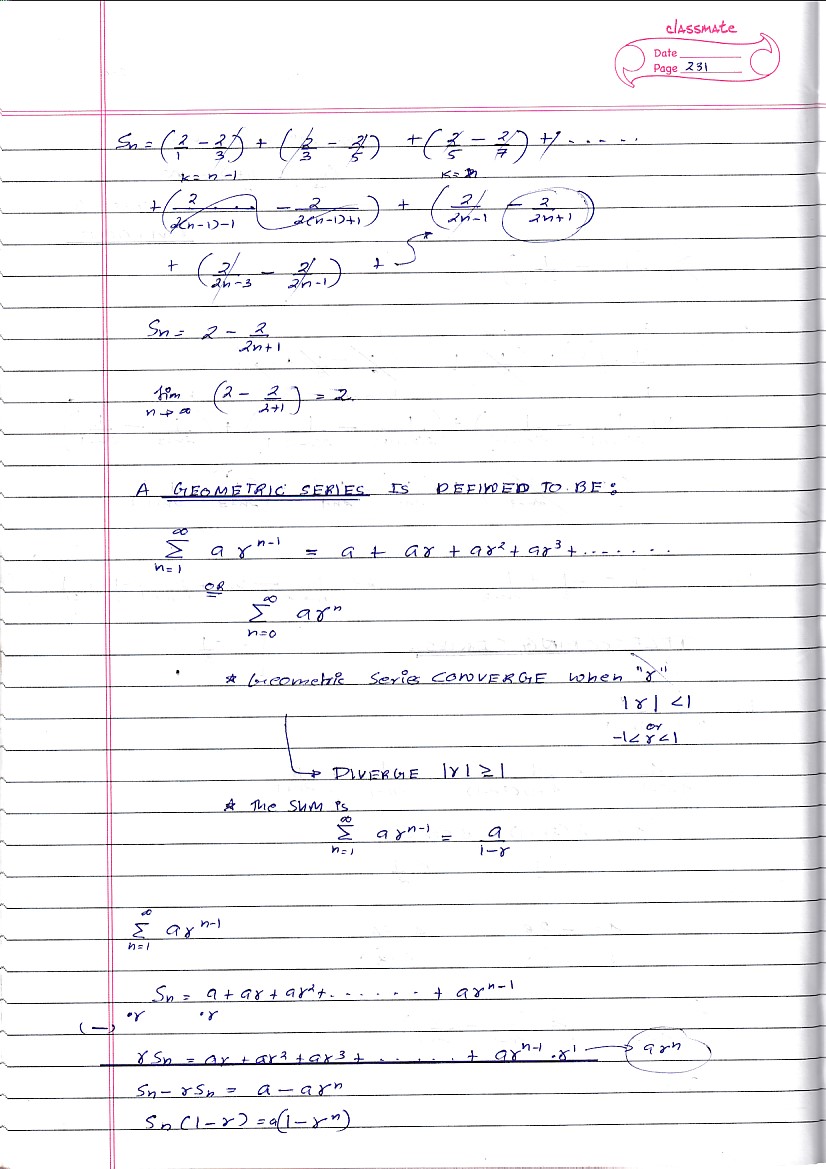 classmate
Date
Page 231
Sn = (2/1 - 2/3) + (2/3 - 2/5) + (2/5 - 2/7) + ......
k = n-1 k = n
+ (2/2(n-1)-1 - 2/2(n-1)+1) + (2/2n-1 - 2/2n+1)
+ (2/2n-3 - 2/2n-1) +
Sn = 2 - 2/2n+1
lim n→∞ (2 - 2/2+1) = 2.
A GEOMETRIC SERIES IS DEFINED TO BE:
∞ Σ n=1 a r^n-1 = a + ar + ar² + ar³ + ........
OR
∞ Σ n=0 ar^n
* Geometric Series CONVERGE when "r"
|r| < 1
or
-1 < r < 1
→ DIVERGE |r| ≥ 1
* The SUM is
∞ Σ n=1 ar^n-1 = a/1-r
∞ Σ n=1 ar^n-1
Sn = a + ar + ar² + ...... + ar^n-1
·r ·r
(-)
rSn = ar + ar² + ar³ + ...... + ar^n-1 · r¹ → ar^n
Sn - rSn = a - ar^n
Sn (1-r) = a(1-r^n)